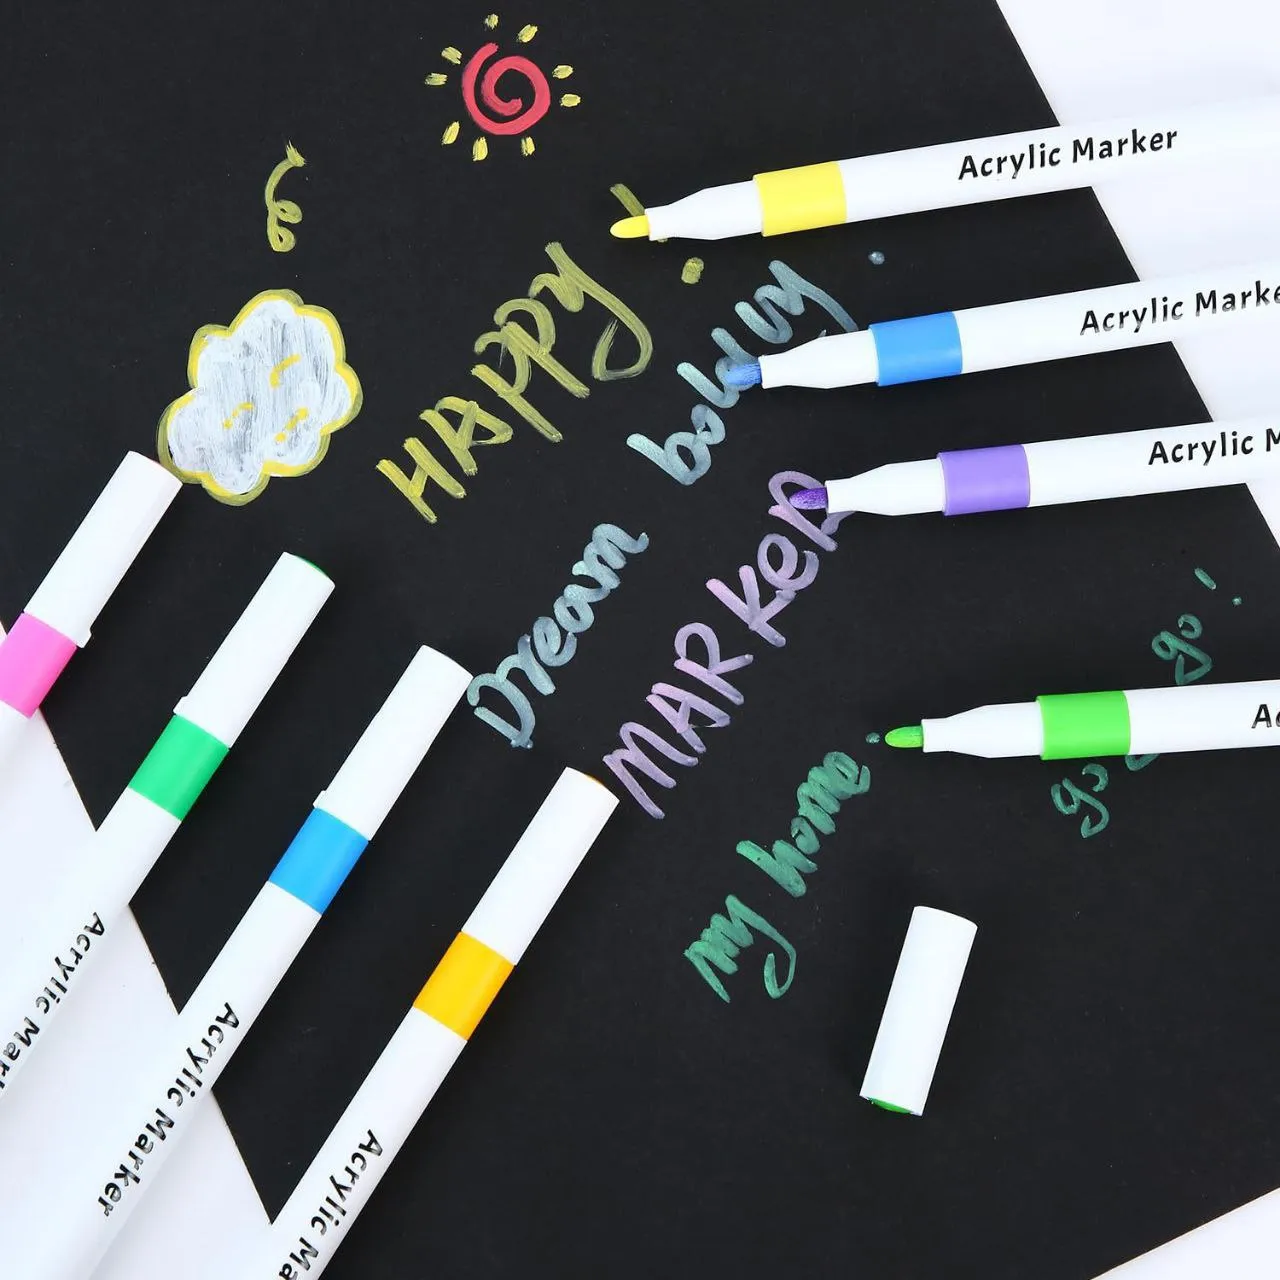 Acrylic Marker
HAPPY!
Acrylic Marke
Acrylic M
Dream
MARKER
go!
go
my home
Ac
Acrylic Mar
Acrylic Marker
Acrylic M